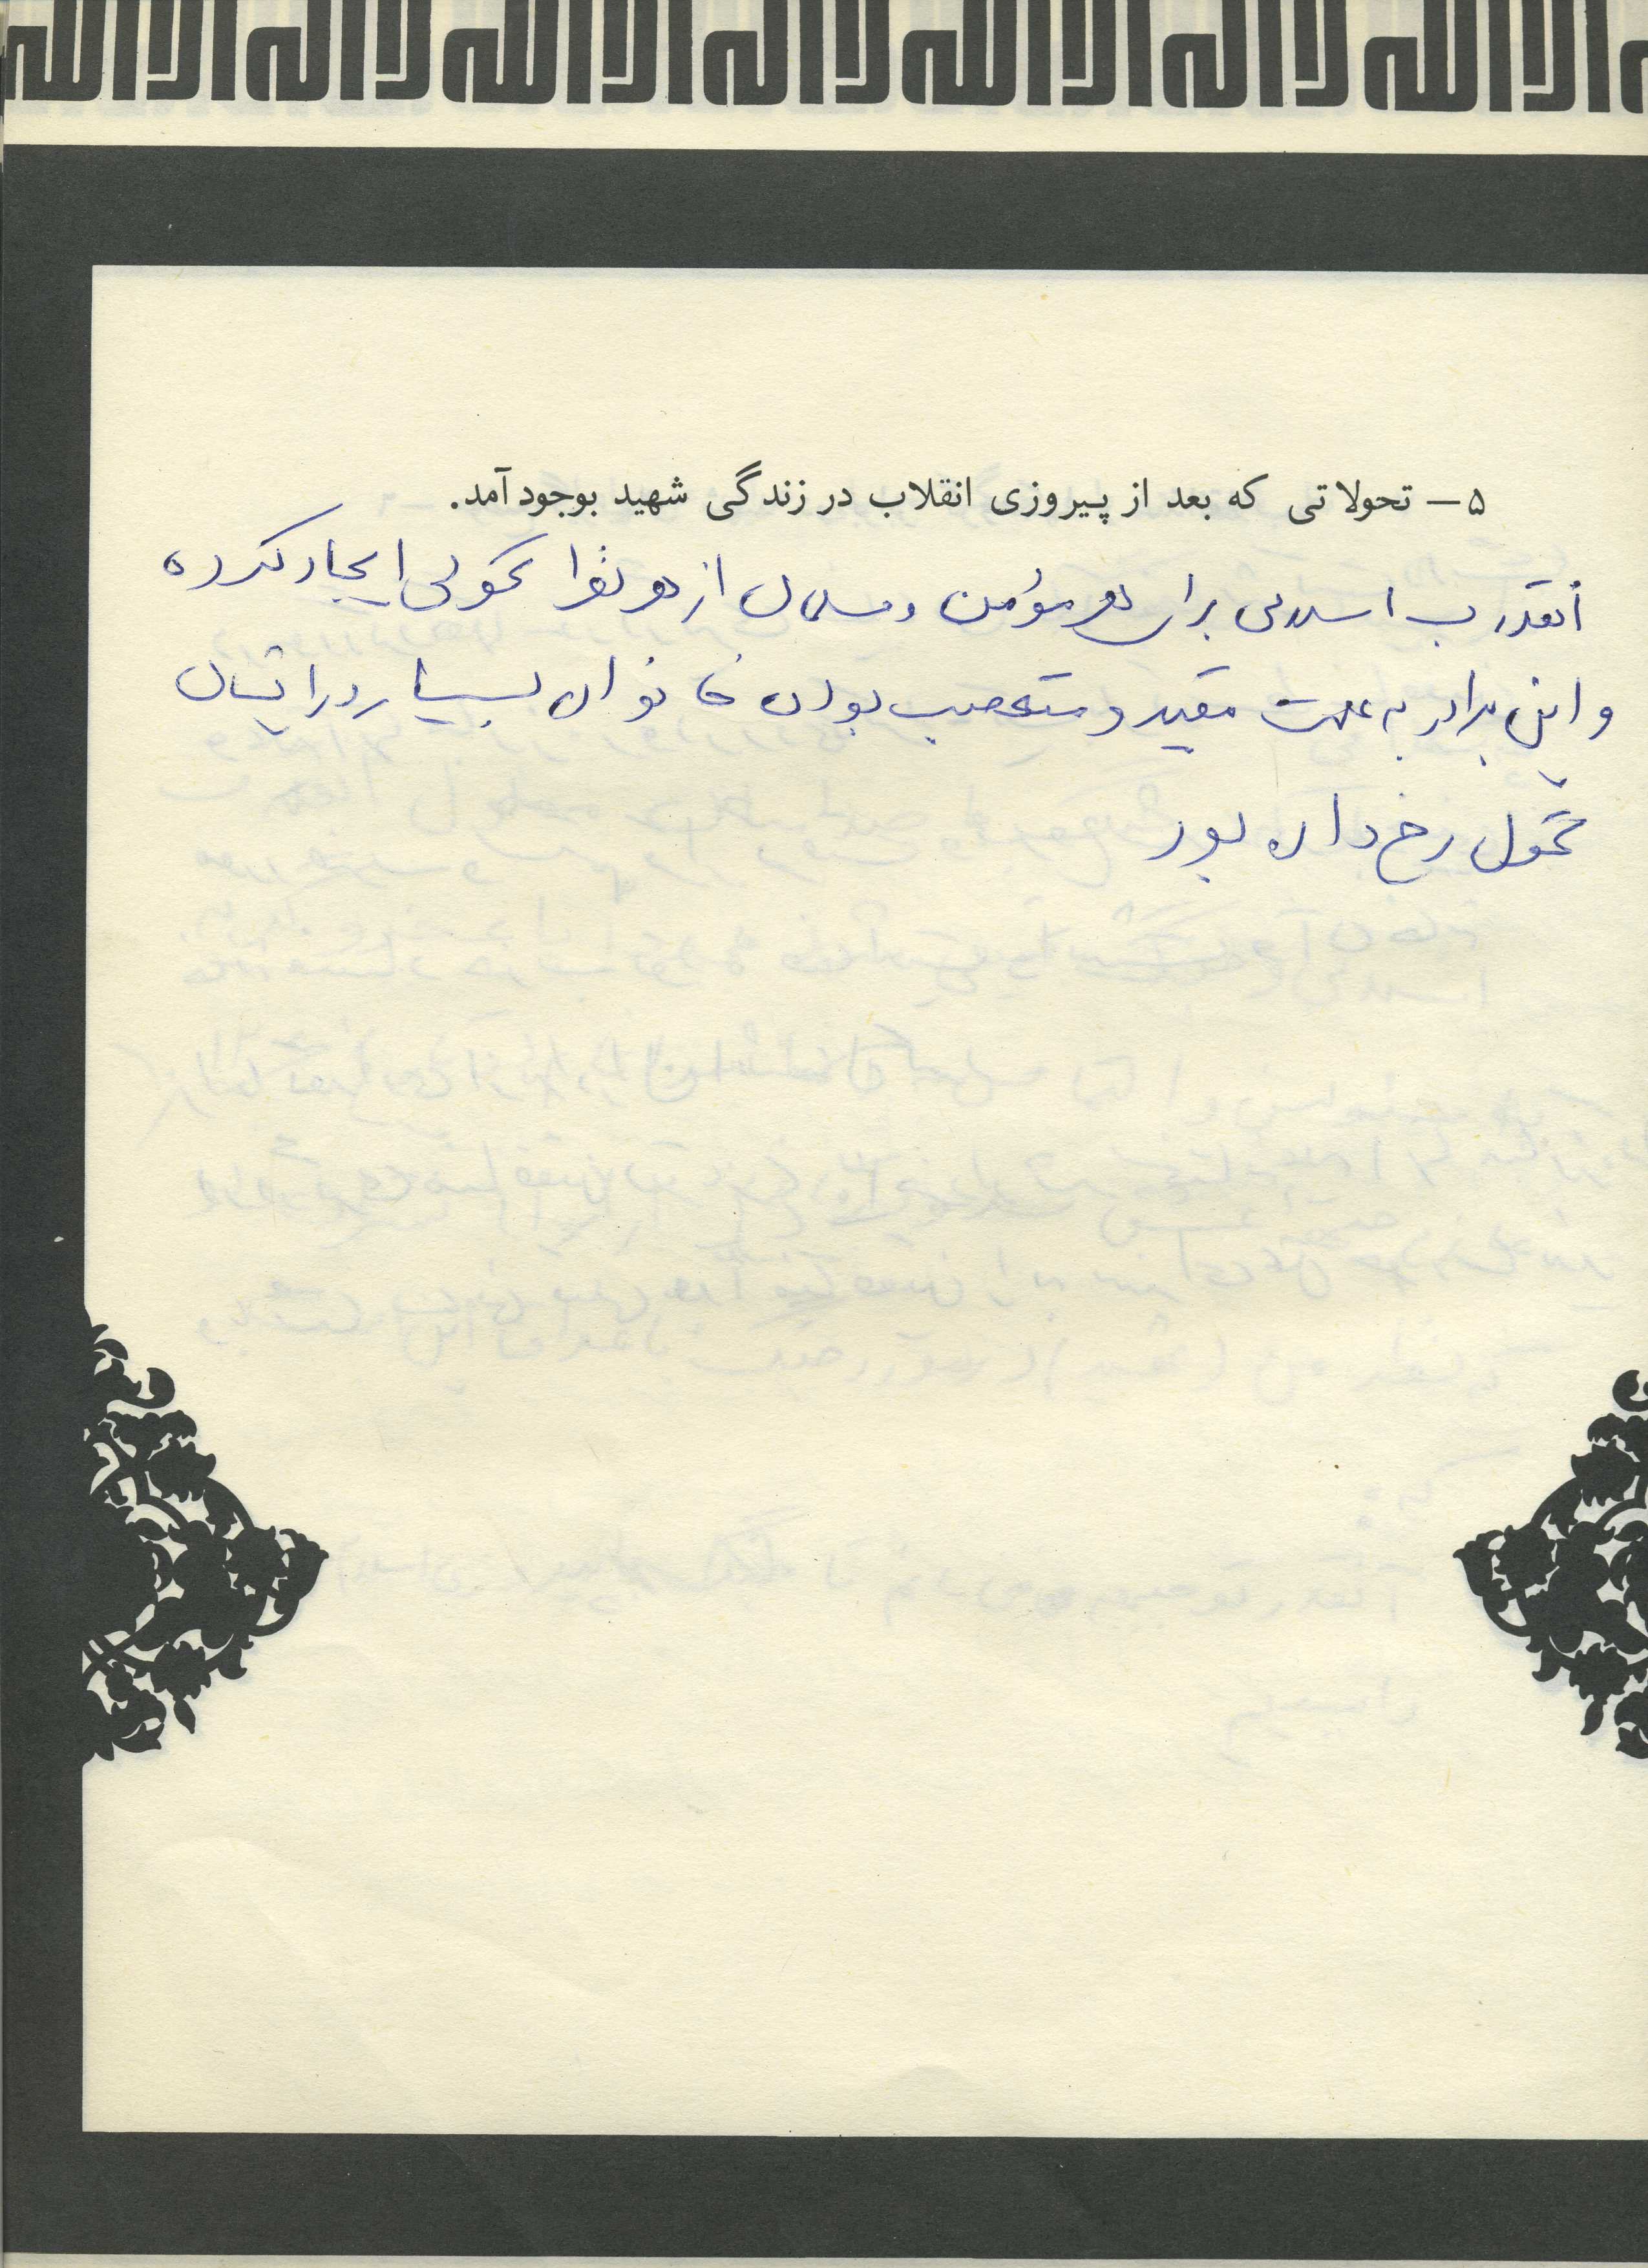 لا اله الا الله لا اله الا الله لا اله الا الله
۵ – تحولاتی که بعد از پیروزی انقلاب در زندگی شهید بوجود آمد.
انقلاب اسلامی برای هر مؤمن و مسلمان از هر نظر تحولی ایجاد کرده
و این برادر به علت مقید و متعصب بودن خانواده بسیار در ایشان
تحول رخ داده بود